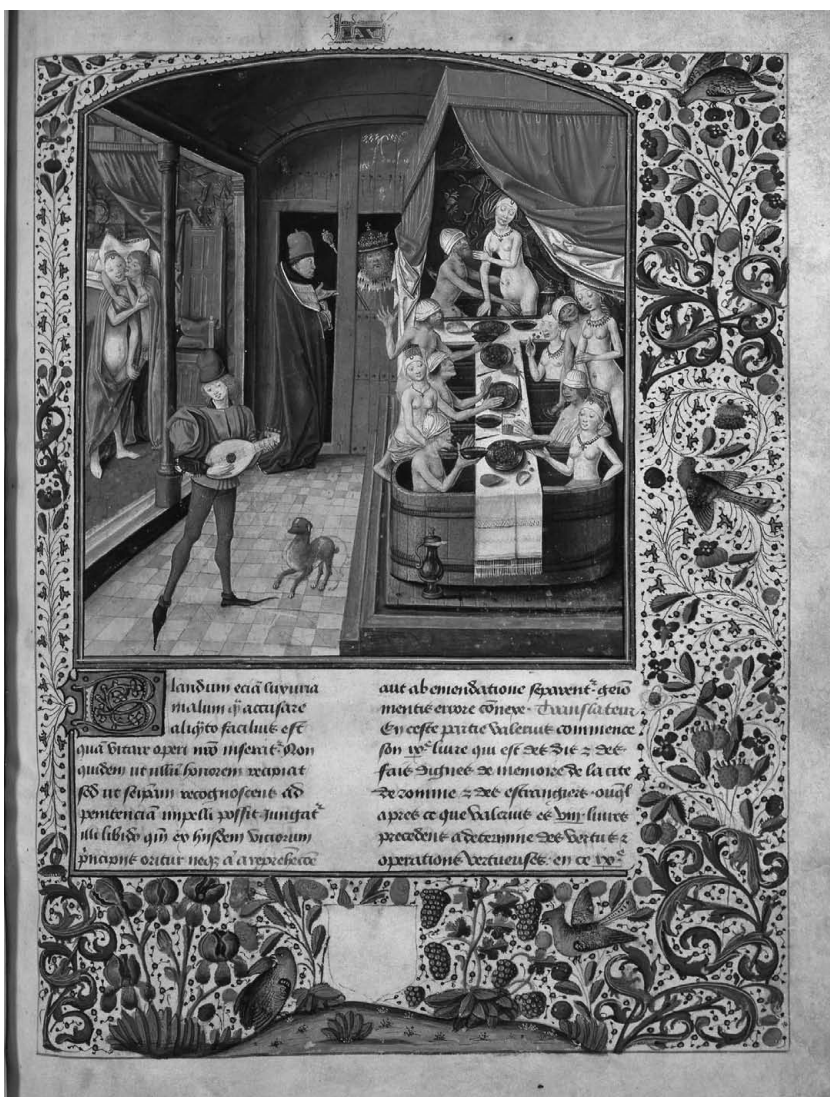 Blandum eciã luxuria
malum q̃ accusare
aliq̃to facilius est
quã vitare operi nr̃o inserat᷑ Non
quidem ut ullũ honorem recipiat
sed ut seip̃am recognoscens ad
penitenciã impelli possit Jungat᷑
illi libido qm̃ ex hisdem viciorum
p̃ncipiis oritur neqꝫ a reprehẽcõe
aut ab emendatione separent᷑ geĩo
mentis errore cõnexe. Translateur
En ceste partie valerius commence
son ixᵉ liure qui est des dis & des
fais dignes de memoire de la cite
de romme & des estrangiers. ouq̃l
apres ce que valerius es viij liures
precedens a determine des vertus &
operations vertueuses. en ce ixᵉ